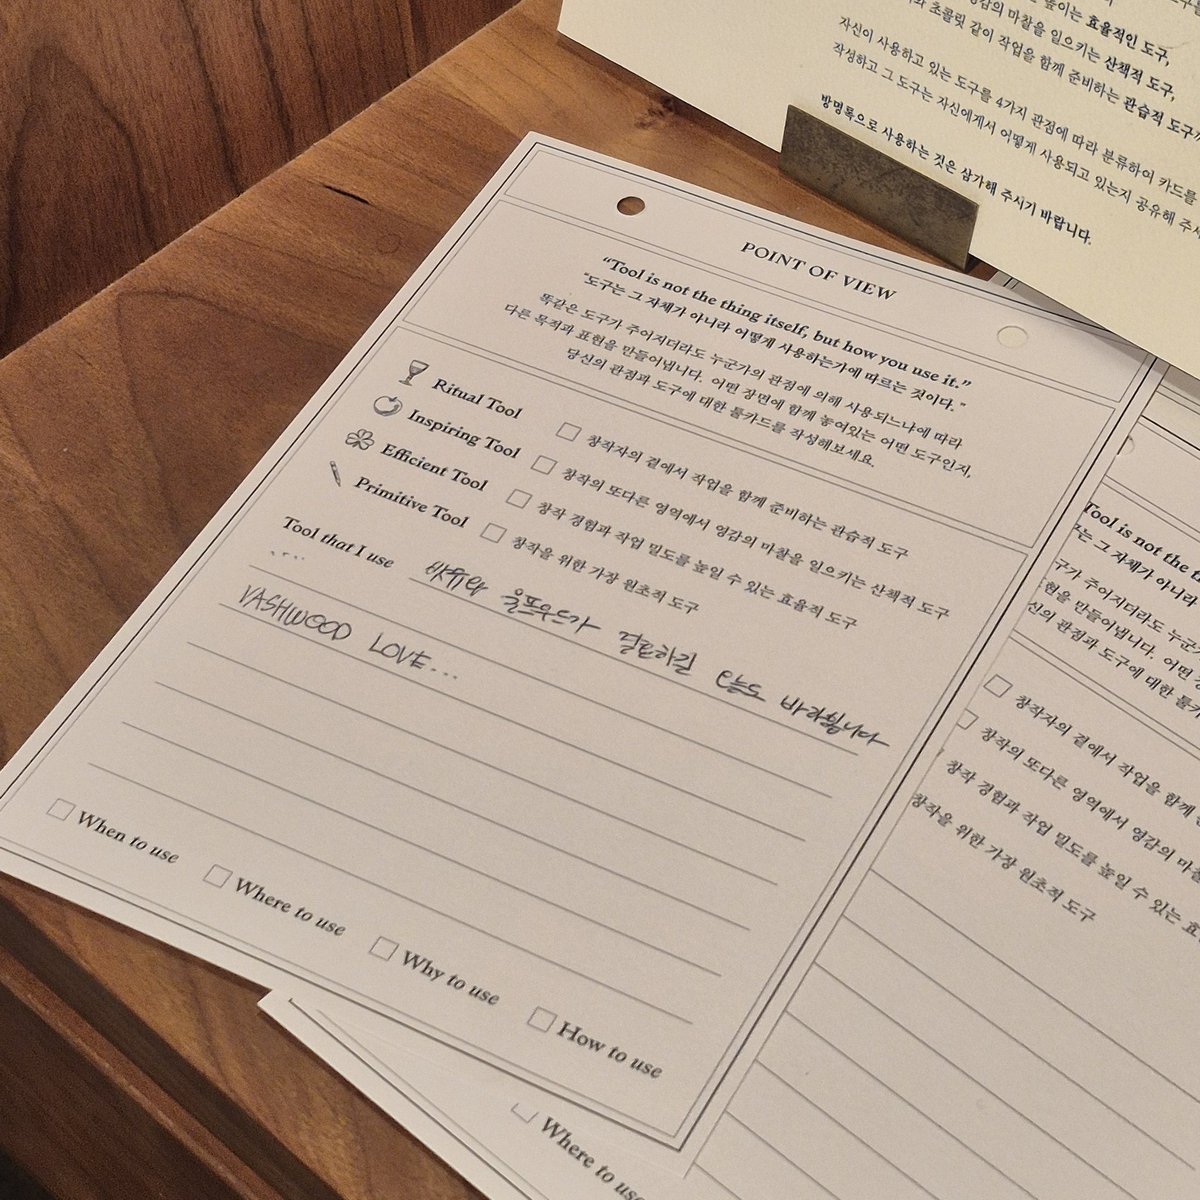 높이는 효율적인 도구,
영감의 마찰을 일으키는 산책적 도구,
초콜릿 같이 작업을 함께 준비하는 관습적 도구
자신이 사용하고 있는 도구를 4가지 관점에 따라 분류하여 카드를
작성하고 그 도구는 자신에게서 어떻게 사용되고 있는지 공유해
방명록으로 사용하는 것은 삼가해 주시기 바랍니다.
POINT OF VIEW
“Tool is not the thing itself, but how you use it.”
"도구는 그 자체가 아니라 어떻게 사용하는가에 따르는 것이다."
똑같은 도구가 주어지더라도 누군가의 관점에 의해 사용되느냐에 따라
다른 목적과 표현을 만들어냅니다. 어떤 장면에 함께 놓여있는 어떤 도구인지,
당신의 관점과 도구에 대한 툴카드를 작성해보세요.
Ritual Tool 창작자의 곁에서 작업을 함께 준비하는 관습적 도구
Inspiring Tool 창작의 또다른 영역에서 영감의 마찰을 일으키는 산책적 도구
Efficient Tool 창작 경험과 작업 밀도를 높일 수 있는 효율적 도구
Primitive Tool 창작을 위한 가장 원초적 도구
Tool that I use 밧슈와 울프우드가 결혼하길 오늘도 바라봅니다
....
VASHWOOD LOVE...
When to use Where to use Why to use How to use
Tool is not the
그 자체가 아니라
도구가 주어지더라도 누군가
표현을 만들어냅니다. 어떤
관점과 도구에 대한 툴카
창작자의 곁에서 작업을 함께
창작의 또다른 영역에서 영감의 마
창작 경험과 작업 밀도를 높일 수 있는
창작을 위한 가장 원초적 도구
Where to use